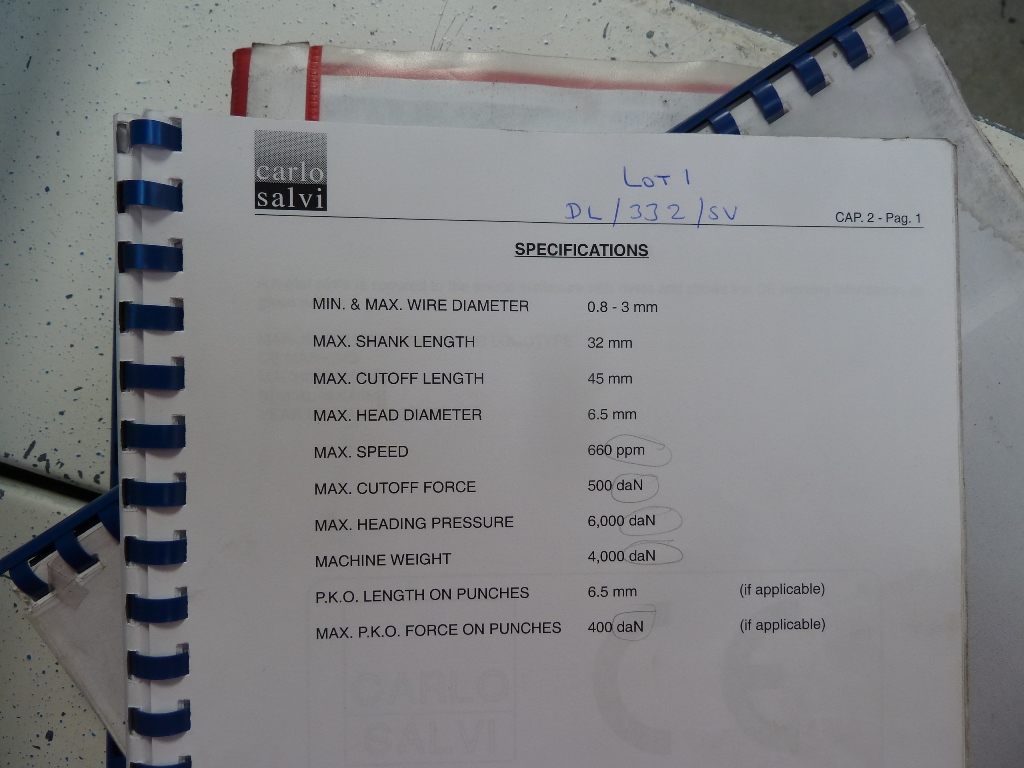 carlo
salvi
LOT 1
DL/332/SV
CAP. 2 - Pag. 1
SPECIFICATIONS
MIN. & MAX. WIRE DIAMETER 0.8 - 3 mm
MAX. SHANK LENGTH 32 mm
MAX. CUTOFF LENGTH 45 mm
MAX. HEAD DIAMETER 6.5 mm
MAX. SPEED 660 ppm
MAX. CUTOFF FORCE 500 daN
MAX. HEADING PRESSURE 6,000 daN
MACHINE WEIGHT 4,000 daN
P.K.O. LENGTH ON PUNCHES 6.5 mm (if applicable)
MAX. P.K.O. FORCE ON PUNCHES 400 daN (if applicable)
CARLO
SALVI
CE